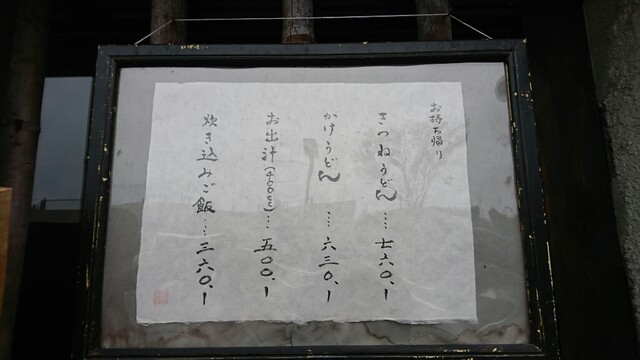 お持ち帰り
きつねうどん…七六〇.ー
かけうどん…六三〇.ー
お出汁(400cc)…五〇〇.ー
炊き込みご飯…三六〇.ー